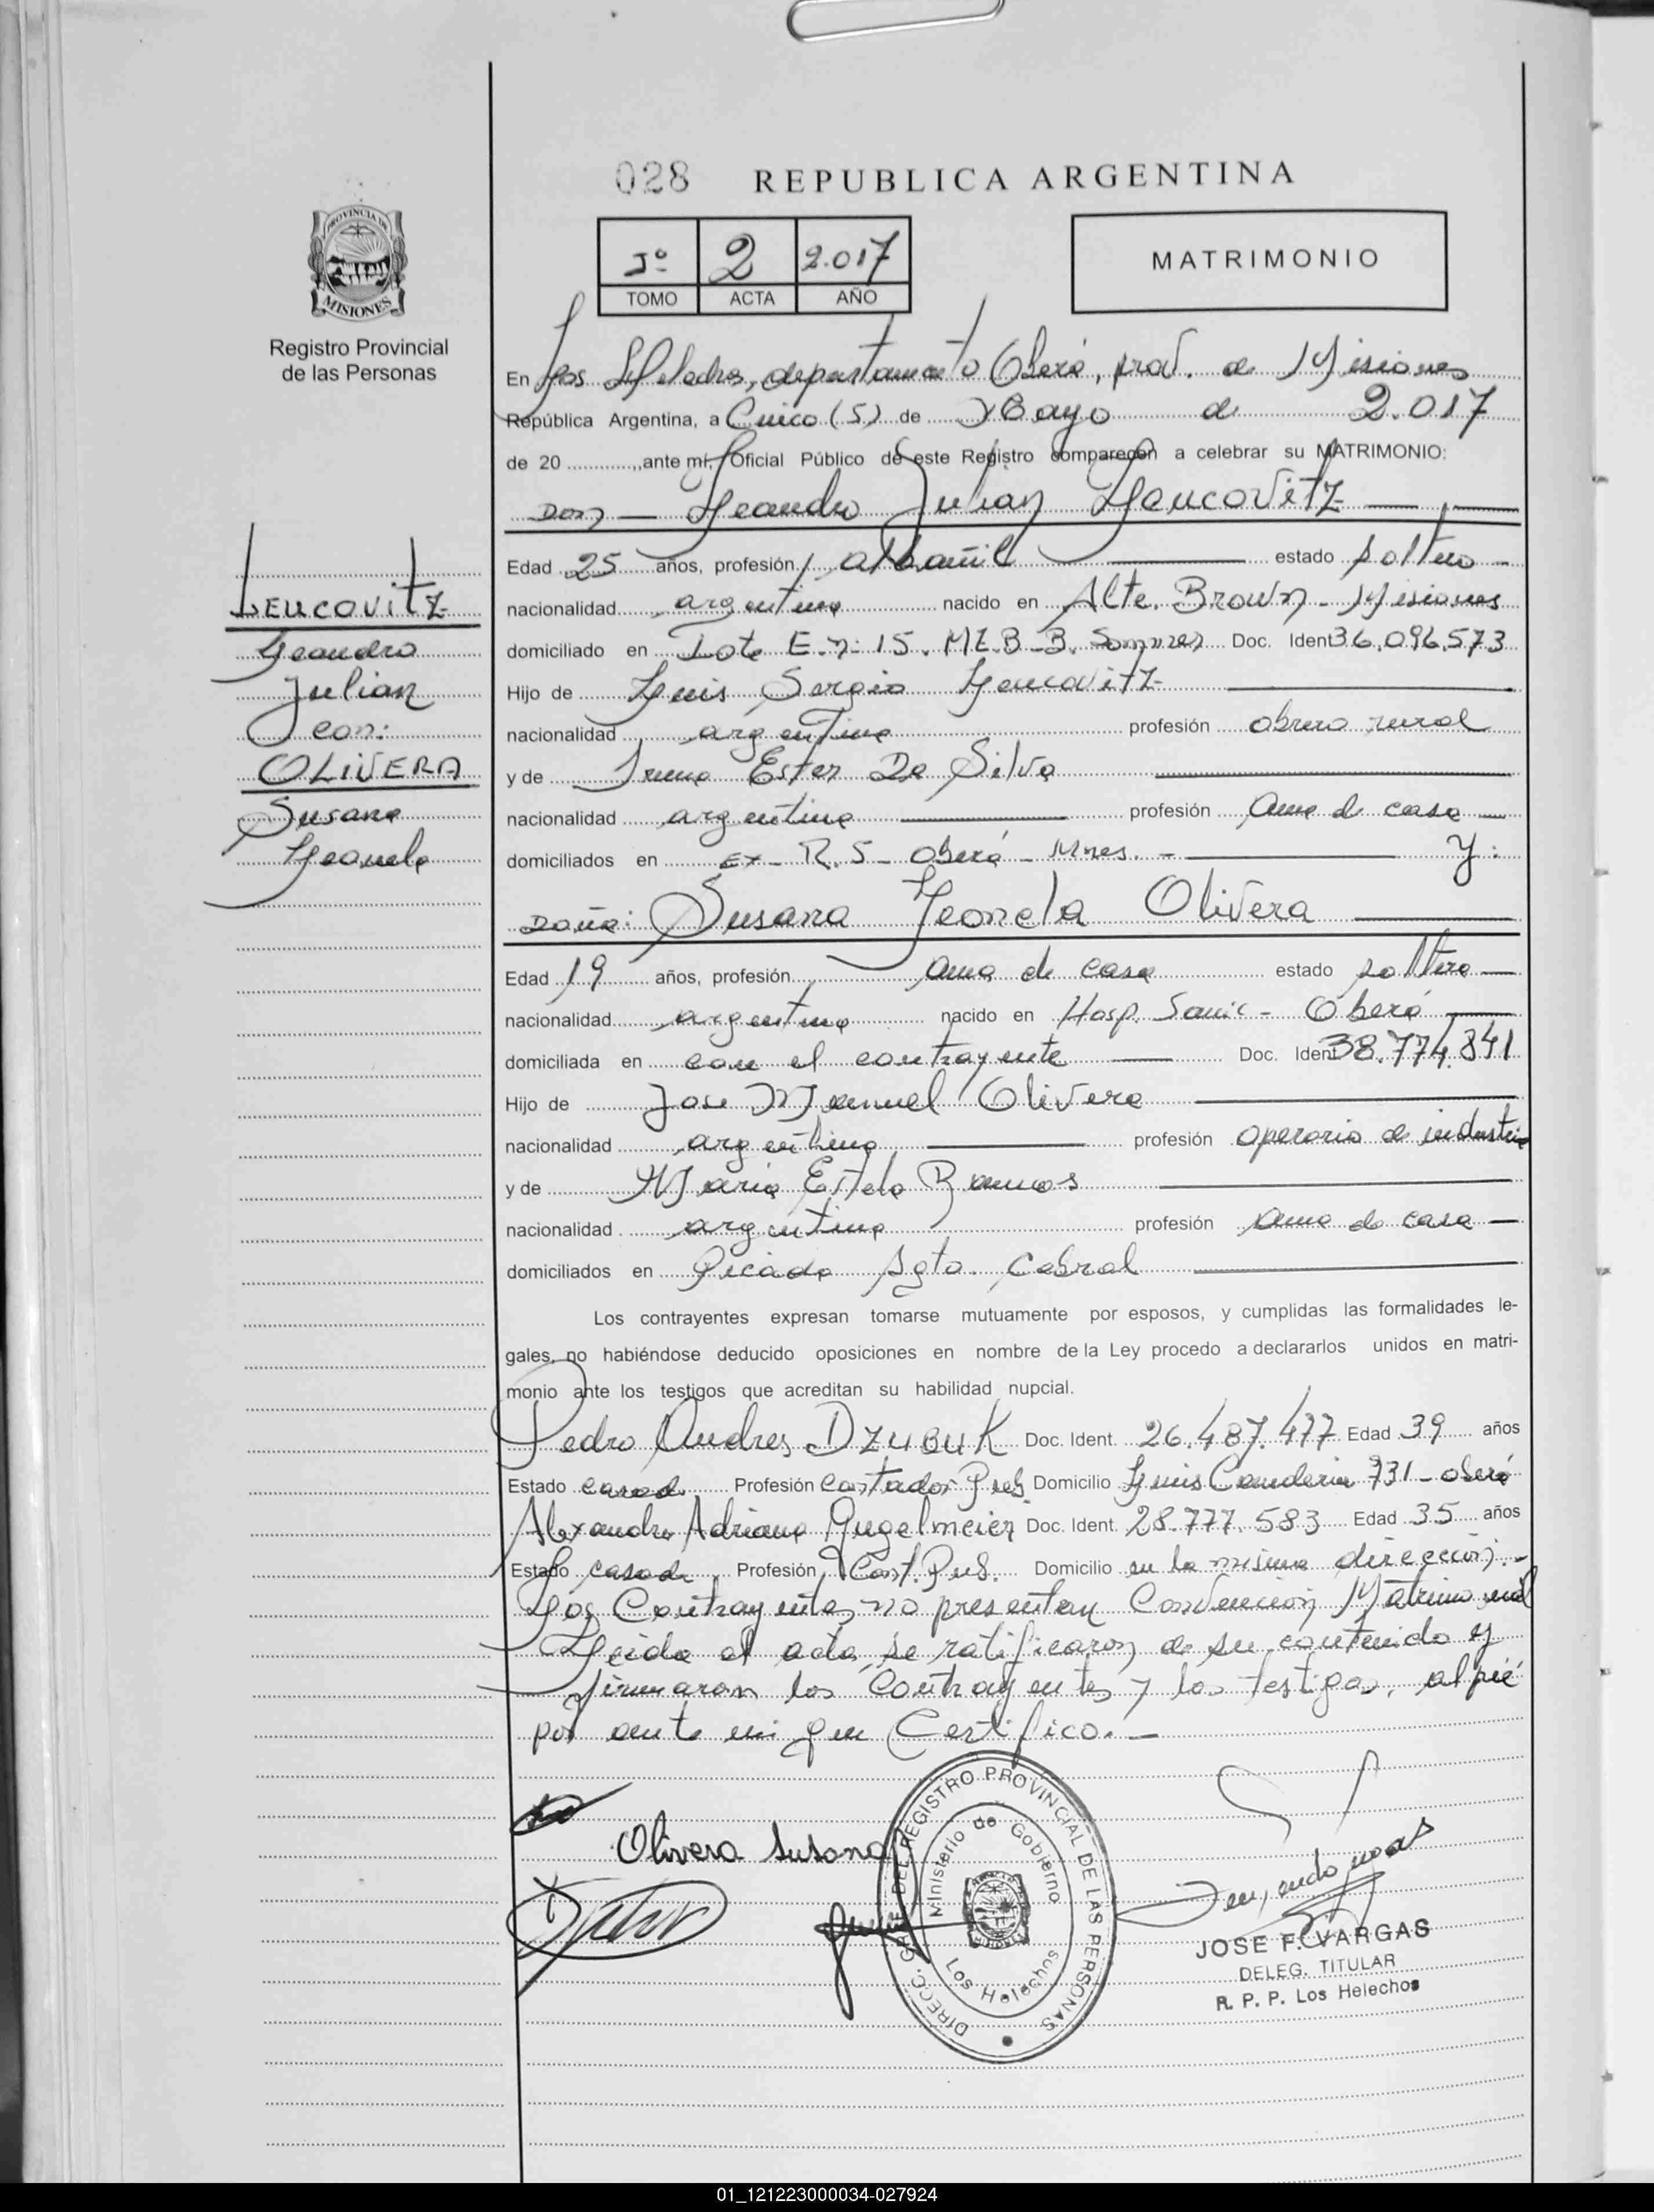 028 REPUBLICA ARGENTINA
Iº 2 2.017
TOMO ACTA AÑO
MATRIMONIO
PROVINCIA DE
MISIONES
Registro Provincial
de las Personas
En Los Helechos, departamento Oberá, prov. de Misiones
República Argentina, a Cinco (5) de Mayo de 2.017
de 20 ............,,ante mí, Oficial Público de este Registro comparecen a celebrar su MATRIMONIO:
Don — Leandro Julian Leucovitz
Edad 25 años, profesión albañil estado soltero
nacionalidad argentina nacido en Alte. Brown - Misiones
domiciliado en Lote E. n: 15. MZ.B - B. Doc. Ident 36.096.573
Hijo de Luis Sergio Leucovitz
nacionalidad argentina profesión obrero rural
y de Irma Ester Da Silva
nacionalidad argentina profesión ama de casa
domiciliados en Ex - R. 5 - Oberá - Mnes. - y:
Doña: Susana Leonela Olivera
Edad 19 años, profesión ama de casa estado soltera
nacionalidad argentina nacido en Hosp. Samic - Oberá
domiciliada en con el contrayente Doc. Ident 38.774.841
Hijo de Jose Manuel Olivera
nacionalidad argentina profesión operario de industria
y de Maria Estela Ramos
nacionalidad argentina profesión ama de casa
domiciliados en Picada Sgto. Cabral
Los contrayentes expresan tomarse mutuamente por esposos, y cumplidas las formalidades le-
gales, no habiéndose deducido oposiciones en nombre de la Ley procedo a declararlos unidos en matri-
monio ante los testigos que acreditan su habilidad nupcial.
Pedro Andres DZUBUK Doc. Ident. 26.487.477 Edad 39 años
Estado casado Profesión Contador Pub Domicilio Luis 731 - Oberá
Alexandra Adriana Gugelmeier Doc. Ident. 28.777.583 Edad 35 años
Estado casada Profesión Cont. Pub. Domicilio en la misma dirección. -
Los Contrayentes no presentan Convencion Matrimonial
Leida el acta, se ratificaron de su contenido y
firmaron los Contrayentes y los testigos, al pié
por ante mi que Certifico. -
LEUCOVITZ
Leandro
Julian
con:
OLIVERA
Susana
Leonela
Olivera Susana
DIRECC. GRAL. DEL REGISTRO PROVINCIAL DE LAS PERSONAS
Ministerio de Gobierno
Los Helechos
JOSE F. VARGAS
DELEG. TITULAR
R. P. P. Los Helechos
01_121223000034-027924